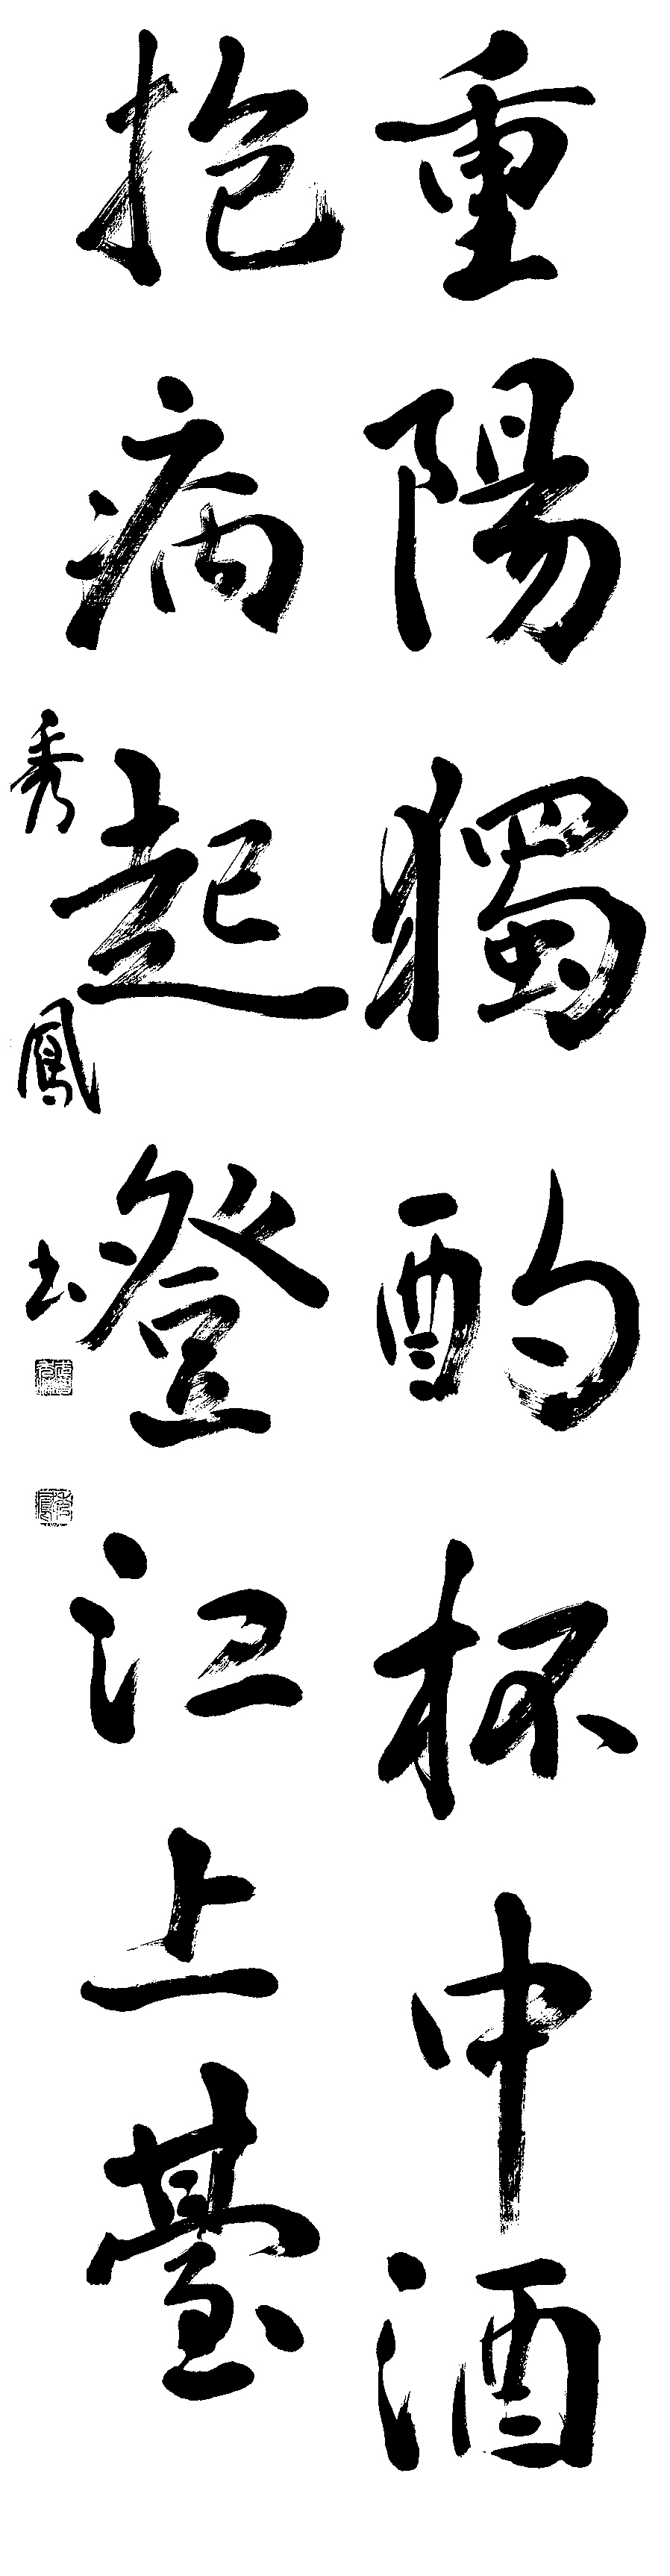 重陽獨酌杯中酒
抱病起登江上臺
秀鳳书